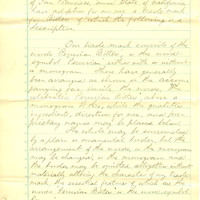 of San Francisco, and State of California
for adoption for a Trade Mark
for Bitters of which the following is a
description
Our trade mark consists of the
words Peruvian Bitters, or the word
Peruvian either with or without
a monogram. They have generally
been arranged as shown in the accom
panying fac simile the words,
Peruvian Bitters above a
monogram while the qualities
ingredients, direction for use, and our
business names may be placed below.
The whole may be surrounded
by a plain or ornamental border, but the
arrangement of the words or the monogram
may be changed, or the monogram
and the border may be omitted altogether without
materially altering the character of my trade
mark the essential features of which are the
words Peruvian Bitters or the word symbol